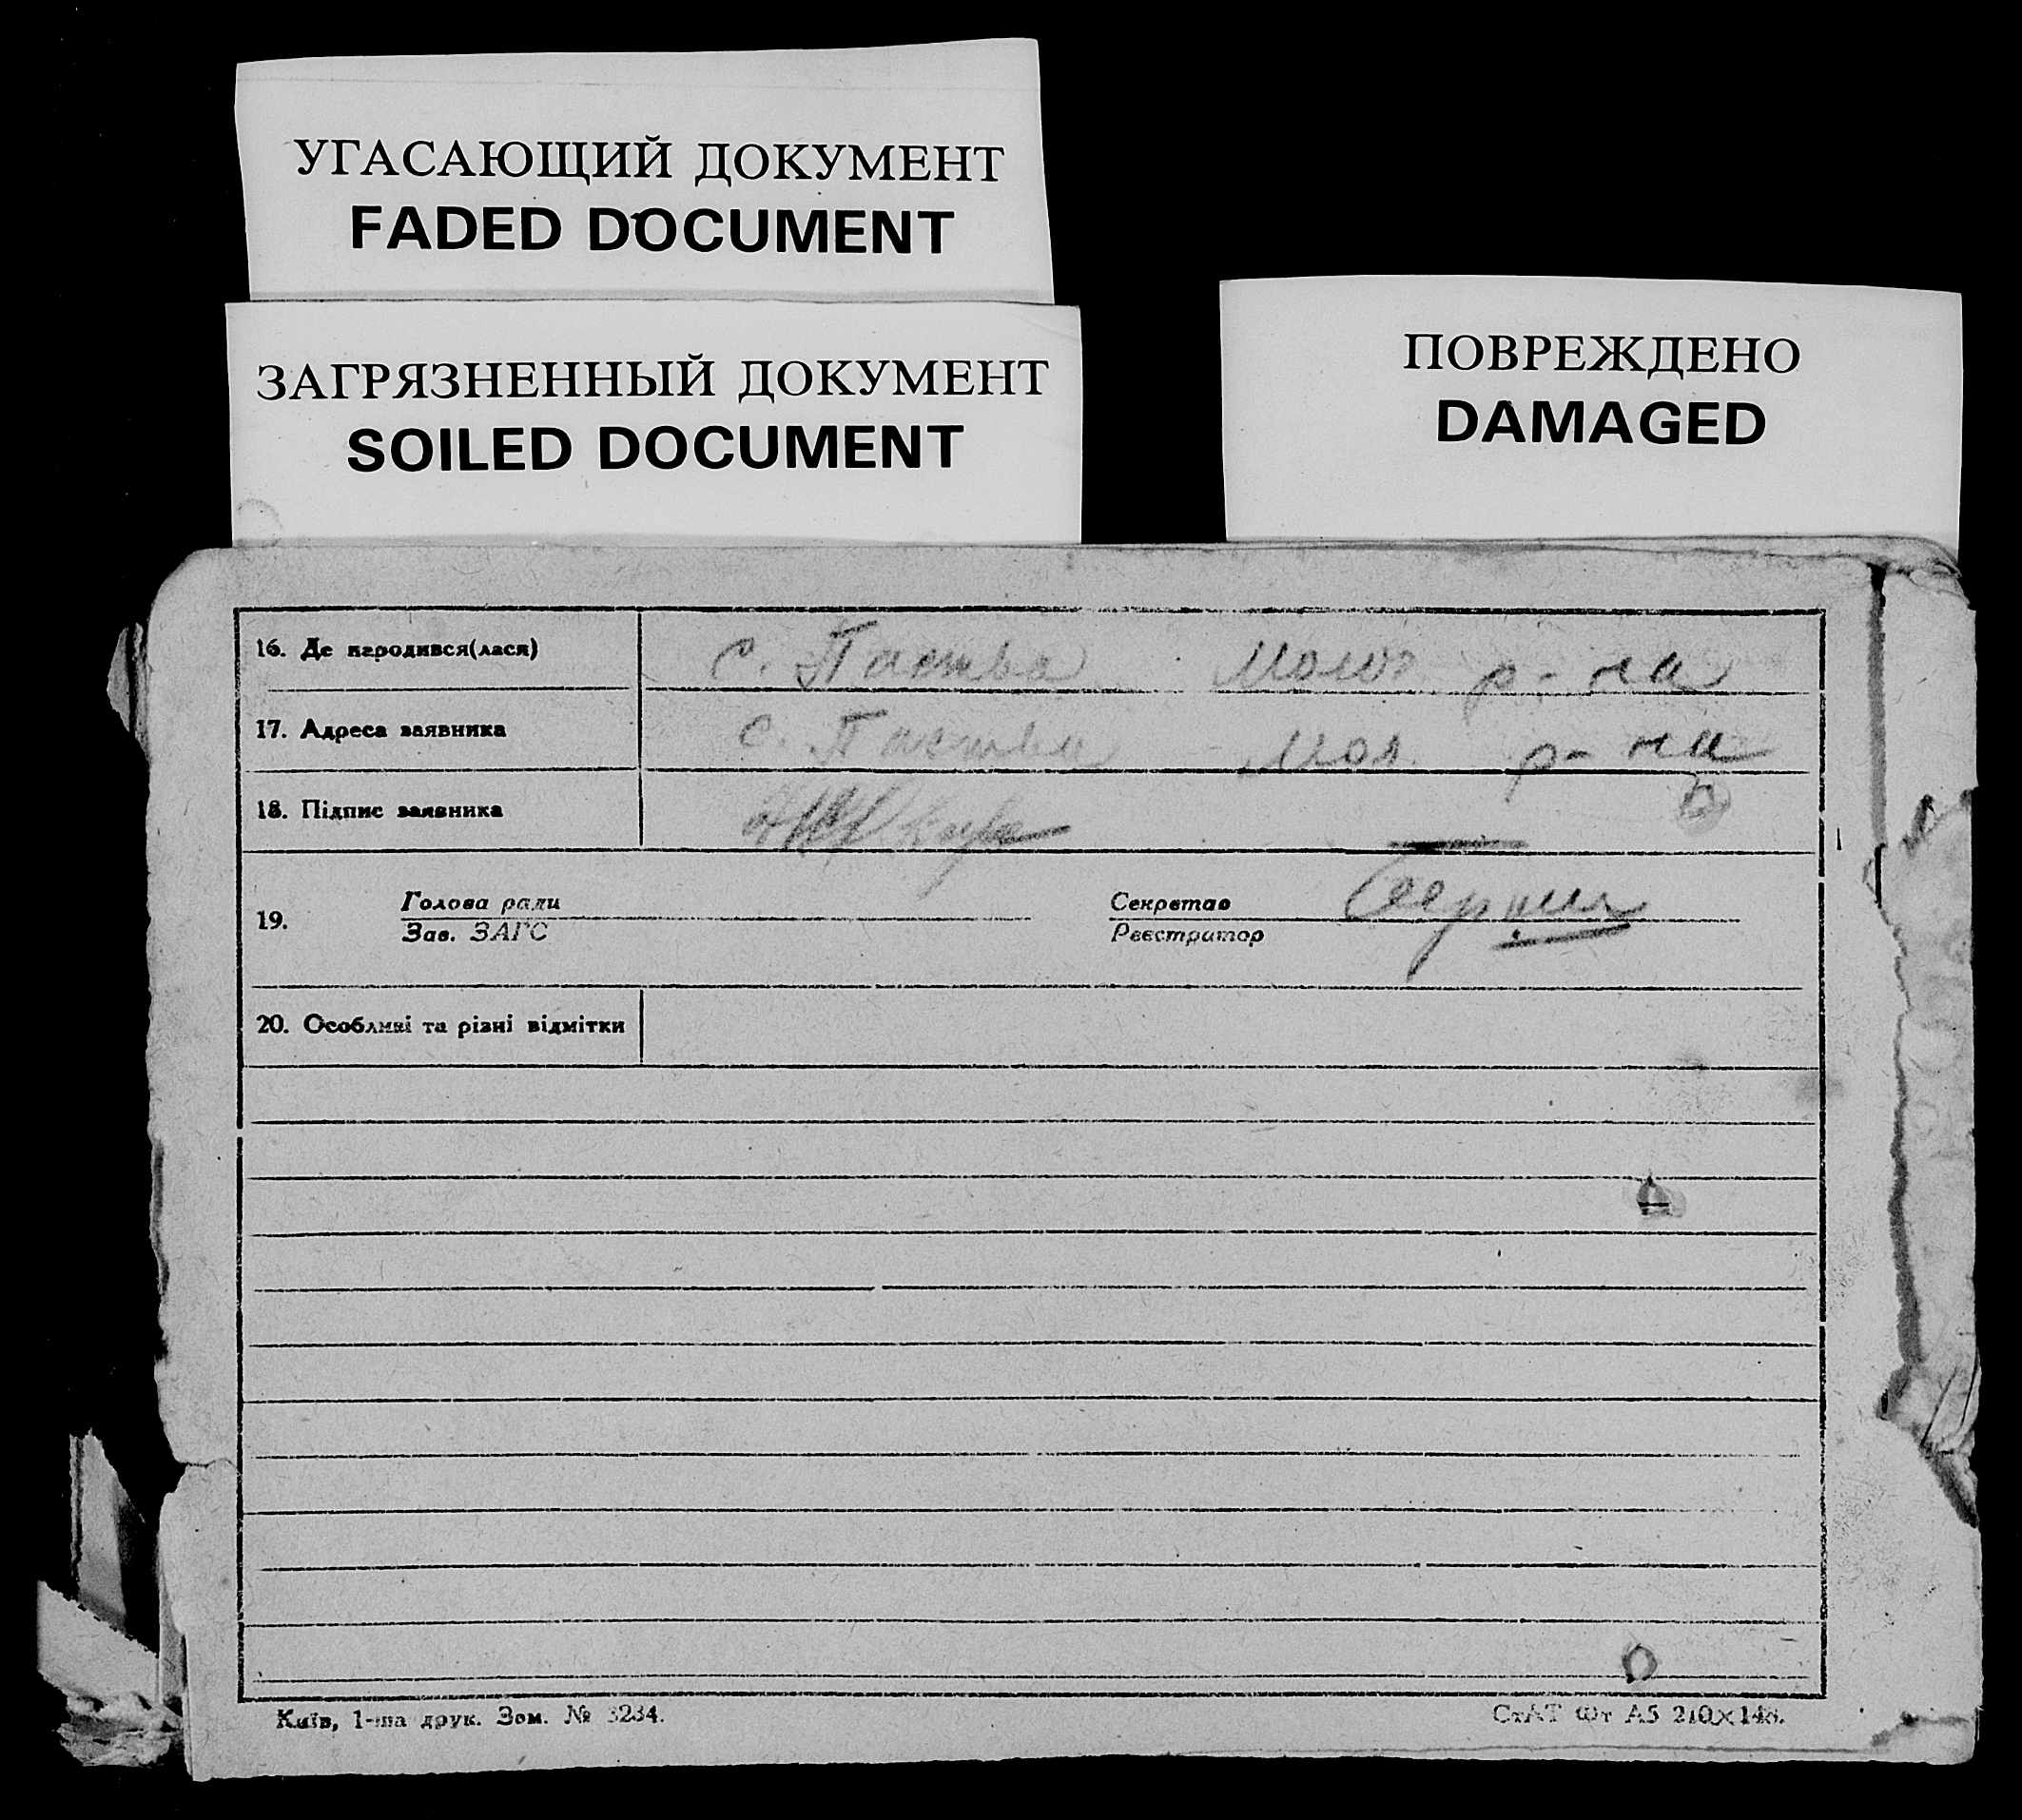 УГАСАЮЩИЙ ДОКУМЕНТ
FADED DOCUMENT
ЗАГРЯЗНЕННЫЙ ДОКУМЕНТ
SOILED DOCUMENT
ПОВРЕЖДЕНО
DAMAGED
16. Де народився(лася) с. Паства р-на
17. Адреса заявника с. Паства Мол. р-на
18. Підпис заявника
19. Голова ради Секретар
Зав. ЗАГС Реєстратор
20. Особливі та різні відмітки
Київ, 1-ша друк. Зам. № 3234. СтАТ Фт А5 210×148.